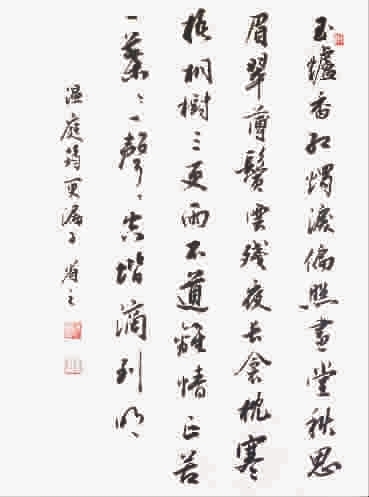 玉爐香紅燭淚偏照畫堂秋思
眉翠薄鬢雲殘夜長衾枕寒
梧桐樹三更雨不道離情正苦
一葉〻一聲〻空階滴到明
温庭筠更漏子